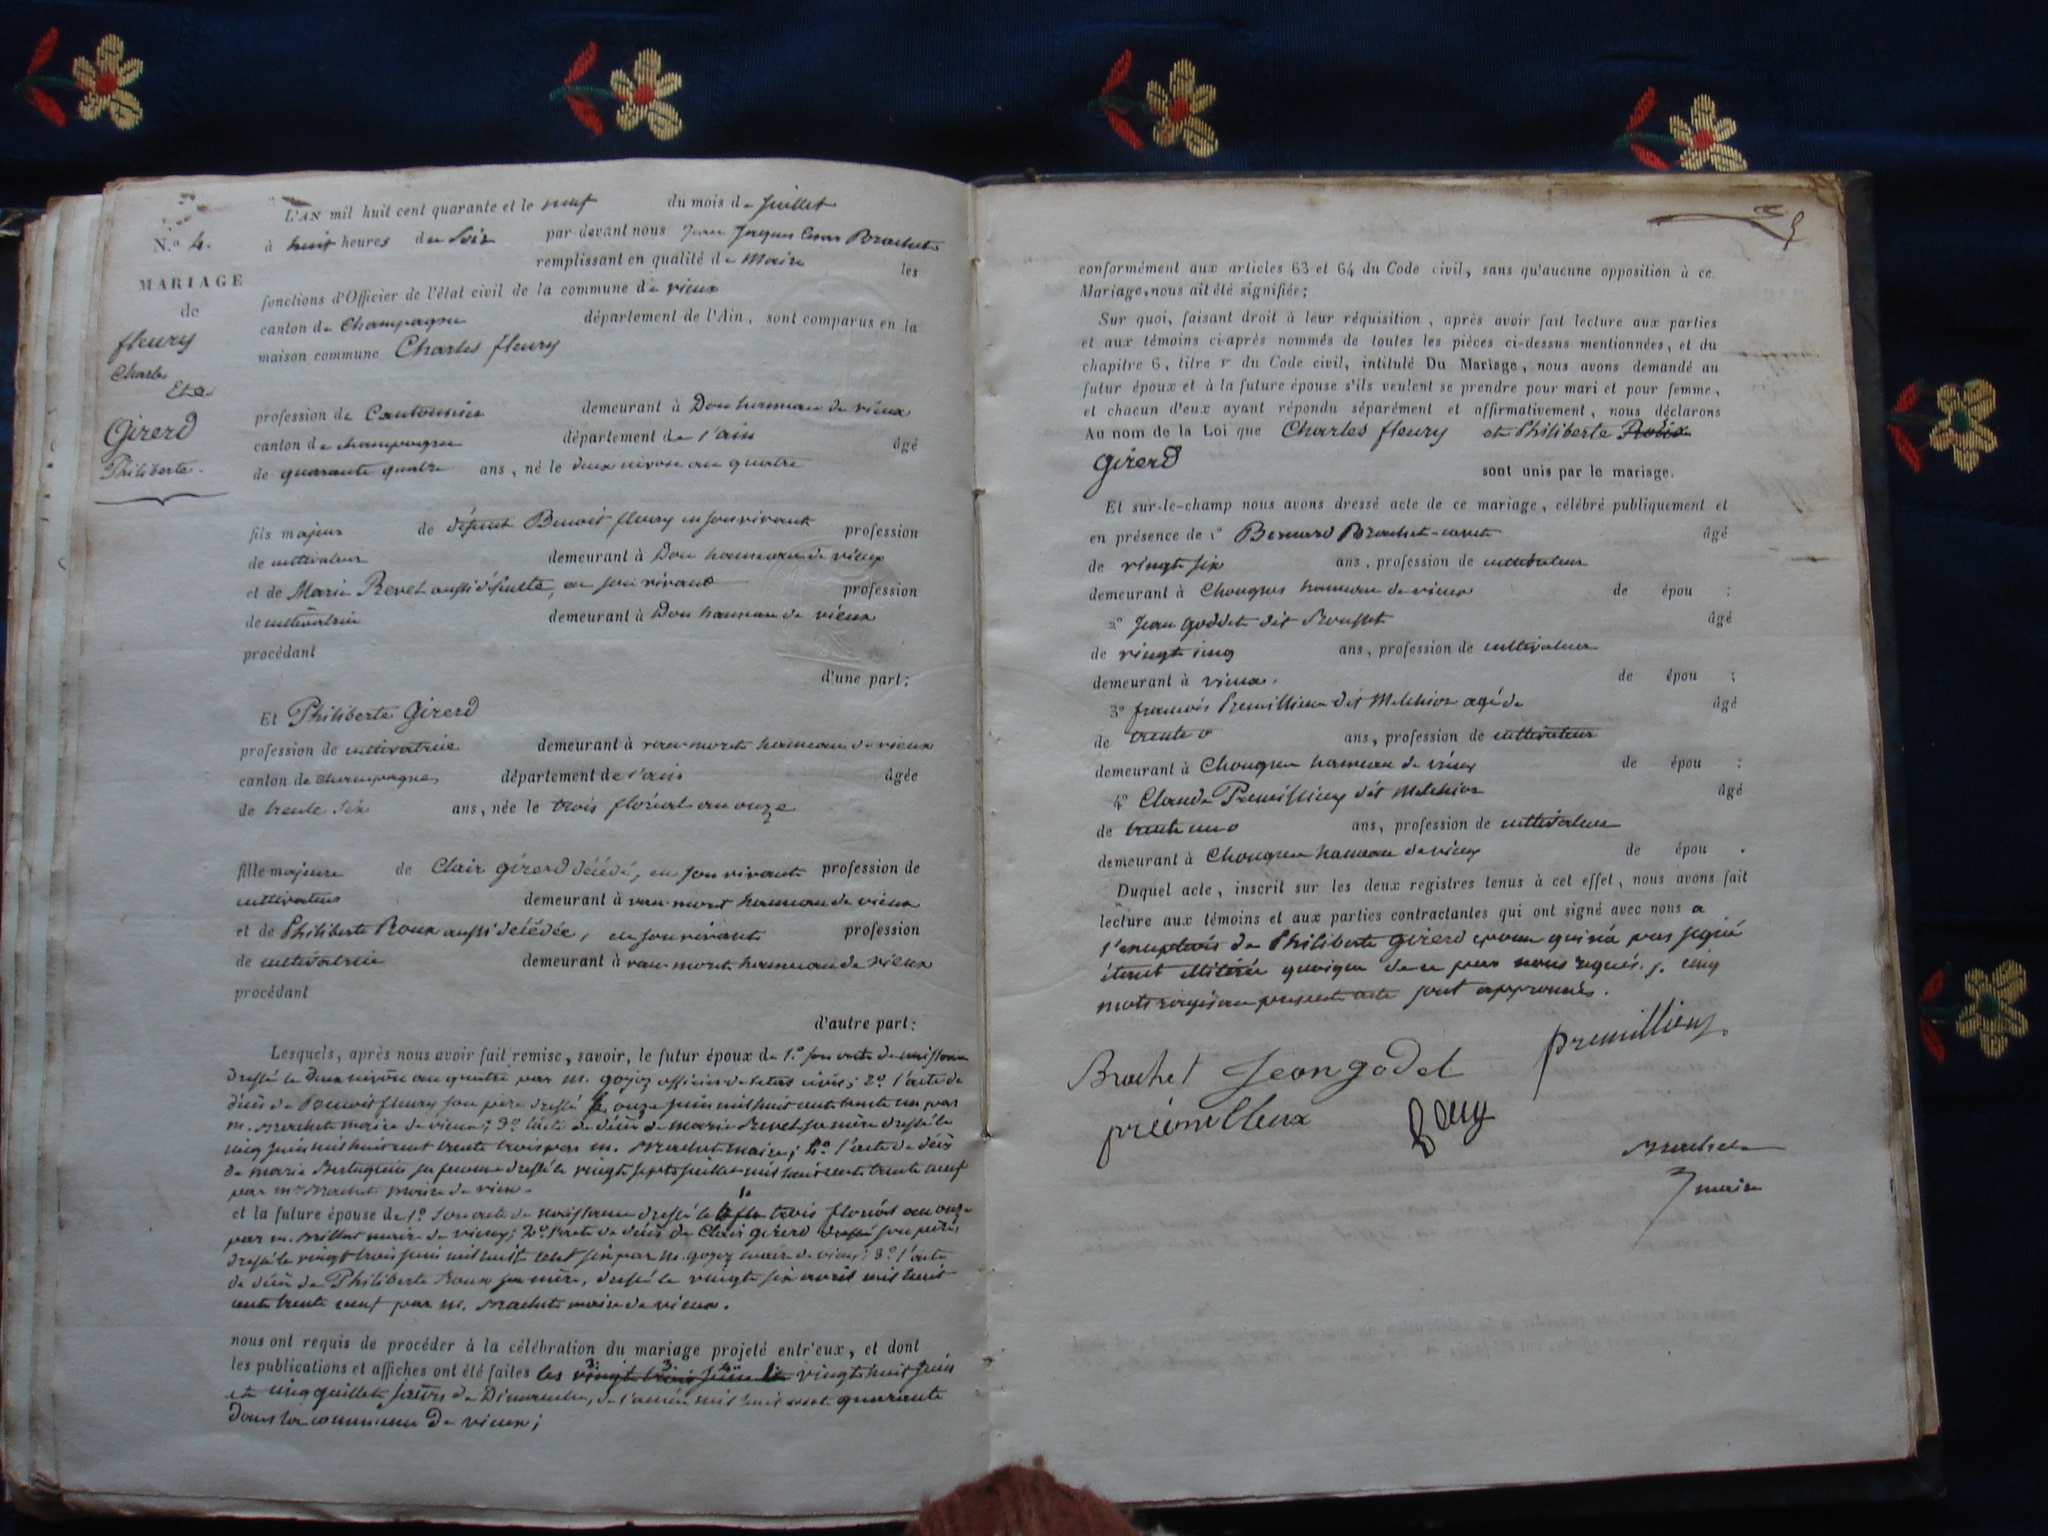 N.º 4.
MARIAGE
de
fleury
Charles
Et
Girerd
Philiberte.
L'AN mil huit cent quarante et le neuf du mois de juillet
à huit heures du Soir par devant nous Jean Jaques Brachet
remplissant en qualité de Maire les
fonctions d'Officier de l'état civil de la commune de vieux
canton de Champagne département de l'Ain, sont comparus en la
maison commune Charles fleury
profession de Cantonnier demeurant à Don hameau de vieux
canton de champagne département de l'ain âgé
de quarante quatre ans, né le deux nivose an quatre
fils majeur de défunt Benoit fleury en son vivant profession
de cultivateur demeurant à Don hameau de vieux
et de Marie Revel aussi défunte, en son vivant profession
de cultivatrice demeurant à Don hameau de vieux
procédant
d'une part;
Et Philiberte Girerd
profession de cultivatrice demeurant à vau-mort hameau de vieux
canton de champagne département de l'ain âgée
de trente six ans, née le trois floréal an onze
fille majeure de Clair girerd décédé, en son vivant profession de
cultivateur demeurant à vau-mort hameau de vieux
et de Philiberte Roux aussi décédée, en son vivant profession
de cultivatrice demeurant à vau-mort hameau de vieux
procédant
d'autre part:
Lesquels, après nous avoir fait remise, savoir, le futur époux de 1.º son acte de naissance
dressé le deux nivose an quatre par m. gojoz officier de l'état civil; 2º l'acte de
décès de Benoit fleury son père dressé le onze juin mil huit cent trente un par
m. Brachet maire de vieux; 3º l'acte de décès de marie Revel sa mère dressé le
cinq juin mil huit cent trente trois par m. Brachet maire; 4º l'acte de décès
de marie sa femme dressé le vingt sept juillet mil huit cent trente neuf
par mr Brachet maire de vieux.
et la future épouse de 1º son acte de naissance dressé le trois floréal an onze
par m. Millet maire de vieux; 2º l'acte de décès de Clair girerd son père,
dressé le vingt trois juin mil huit cent six par m. gojoz maire de vieux; 3º l'acte
de décès de Philiberte Roux sa mère, dressé le vingt six avril mil huit
cent trente neuf par m. Brachet maire de vieux.
nous ont requis de procéder à la célébration du mariage projeté entr'eux, et dont
les publications et affiches ont été faites les vingt trois juin et vingt huit juin
et cinq juillet jours de Dimanche, de l'année mil huit cent quarante
dans la commune de vieux;
conformément aux articles 63 et 64 du Code civil, sans qu'aucune opposition à ce
Mariage, nous ait été signifiée;
Sur quoi, faisant droit à leur réquisition, après avoir fait lecture aux parties
et aux témoins ci-après nommés de toutes les pièces ci-dessus mentionnées, et du
chapitre 6, titre v du Code civil, intitulé Du Mariage, nous avons demandé au
futur époux et à la future épouse s'ils veulent se prendre pour mari et pour femme,
et chacun d'eux ayant répondu séparément et affirmativement, nous déclarons
Au nom de la Loi que Charles fleury et Philiberte Roux
girerd sont unis par le mariage.
Et sur-le-champ nous avons dressé acte de ce mariage, célébré publiquement et
en présence de 1º Bernard Brachet âgé
de vingt six ans, profession de cultivateur
demeurant à Chongnes hameau de vieux de épou ;
2º Jean goddet dit Rousset âgé
de vingt cinq ans, profession de cultivateur
demeurant à vieux. de épou ;
3º françois Premillieux dit Melchior agé de âgé
de trente ans, profession de cultivateur
demeurant à Chongnes hameau de vieux de épou ;
4º Claude Premillieux dit Melchior âgé
de trente un ans, profession de cultivateur
demeurant à Chongnes hameau de vieux de épou .
Duquel acte, inscrit sur les deux registres tenus à cet effet, nous avons fait
lecture aux témoins et aux parties contractantes qui ont signé avec nous a
l'exception de Philiberte girerd epouse qui n'a pas signé
étant illitérée quoique de ce par nous requis. cinq
mots rayés au présent acte sont approuvés.
premillieux
Brachet Jeangodet
prémilleux fleury
Brachet
maire